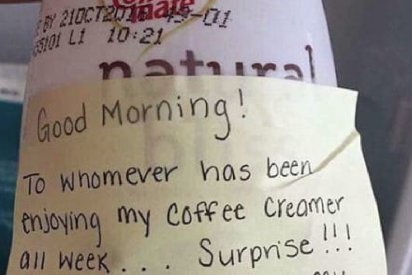 BY 21OCT20
-01
mate
L1 10:21
natural
Good Morning!
To whomever has been
enjoying my Coffee Creamer
all week... Surprise!!!